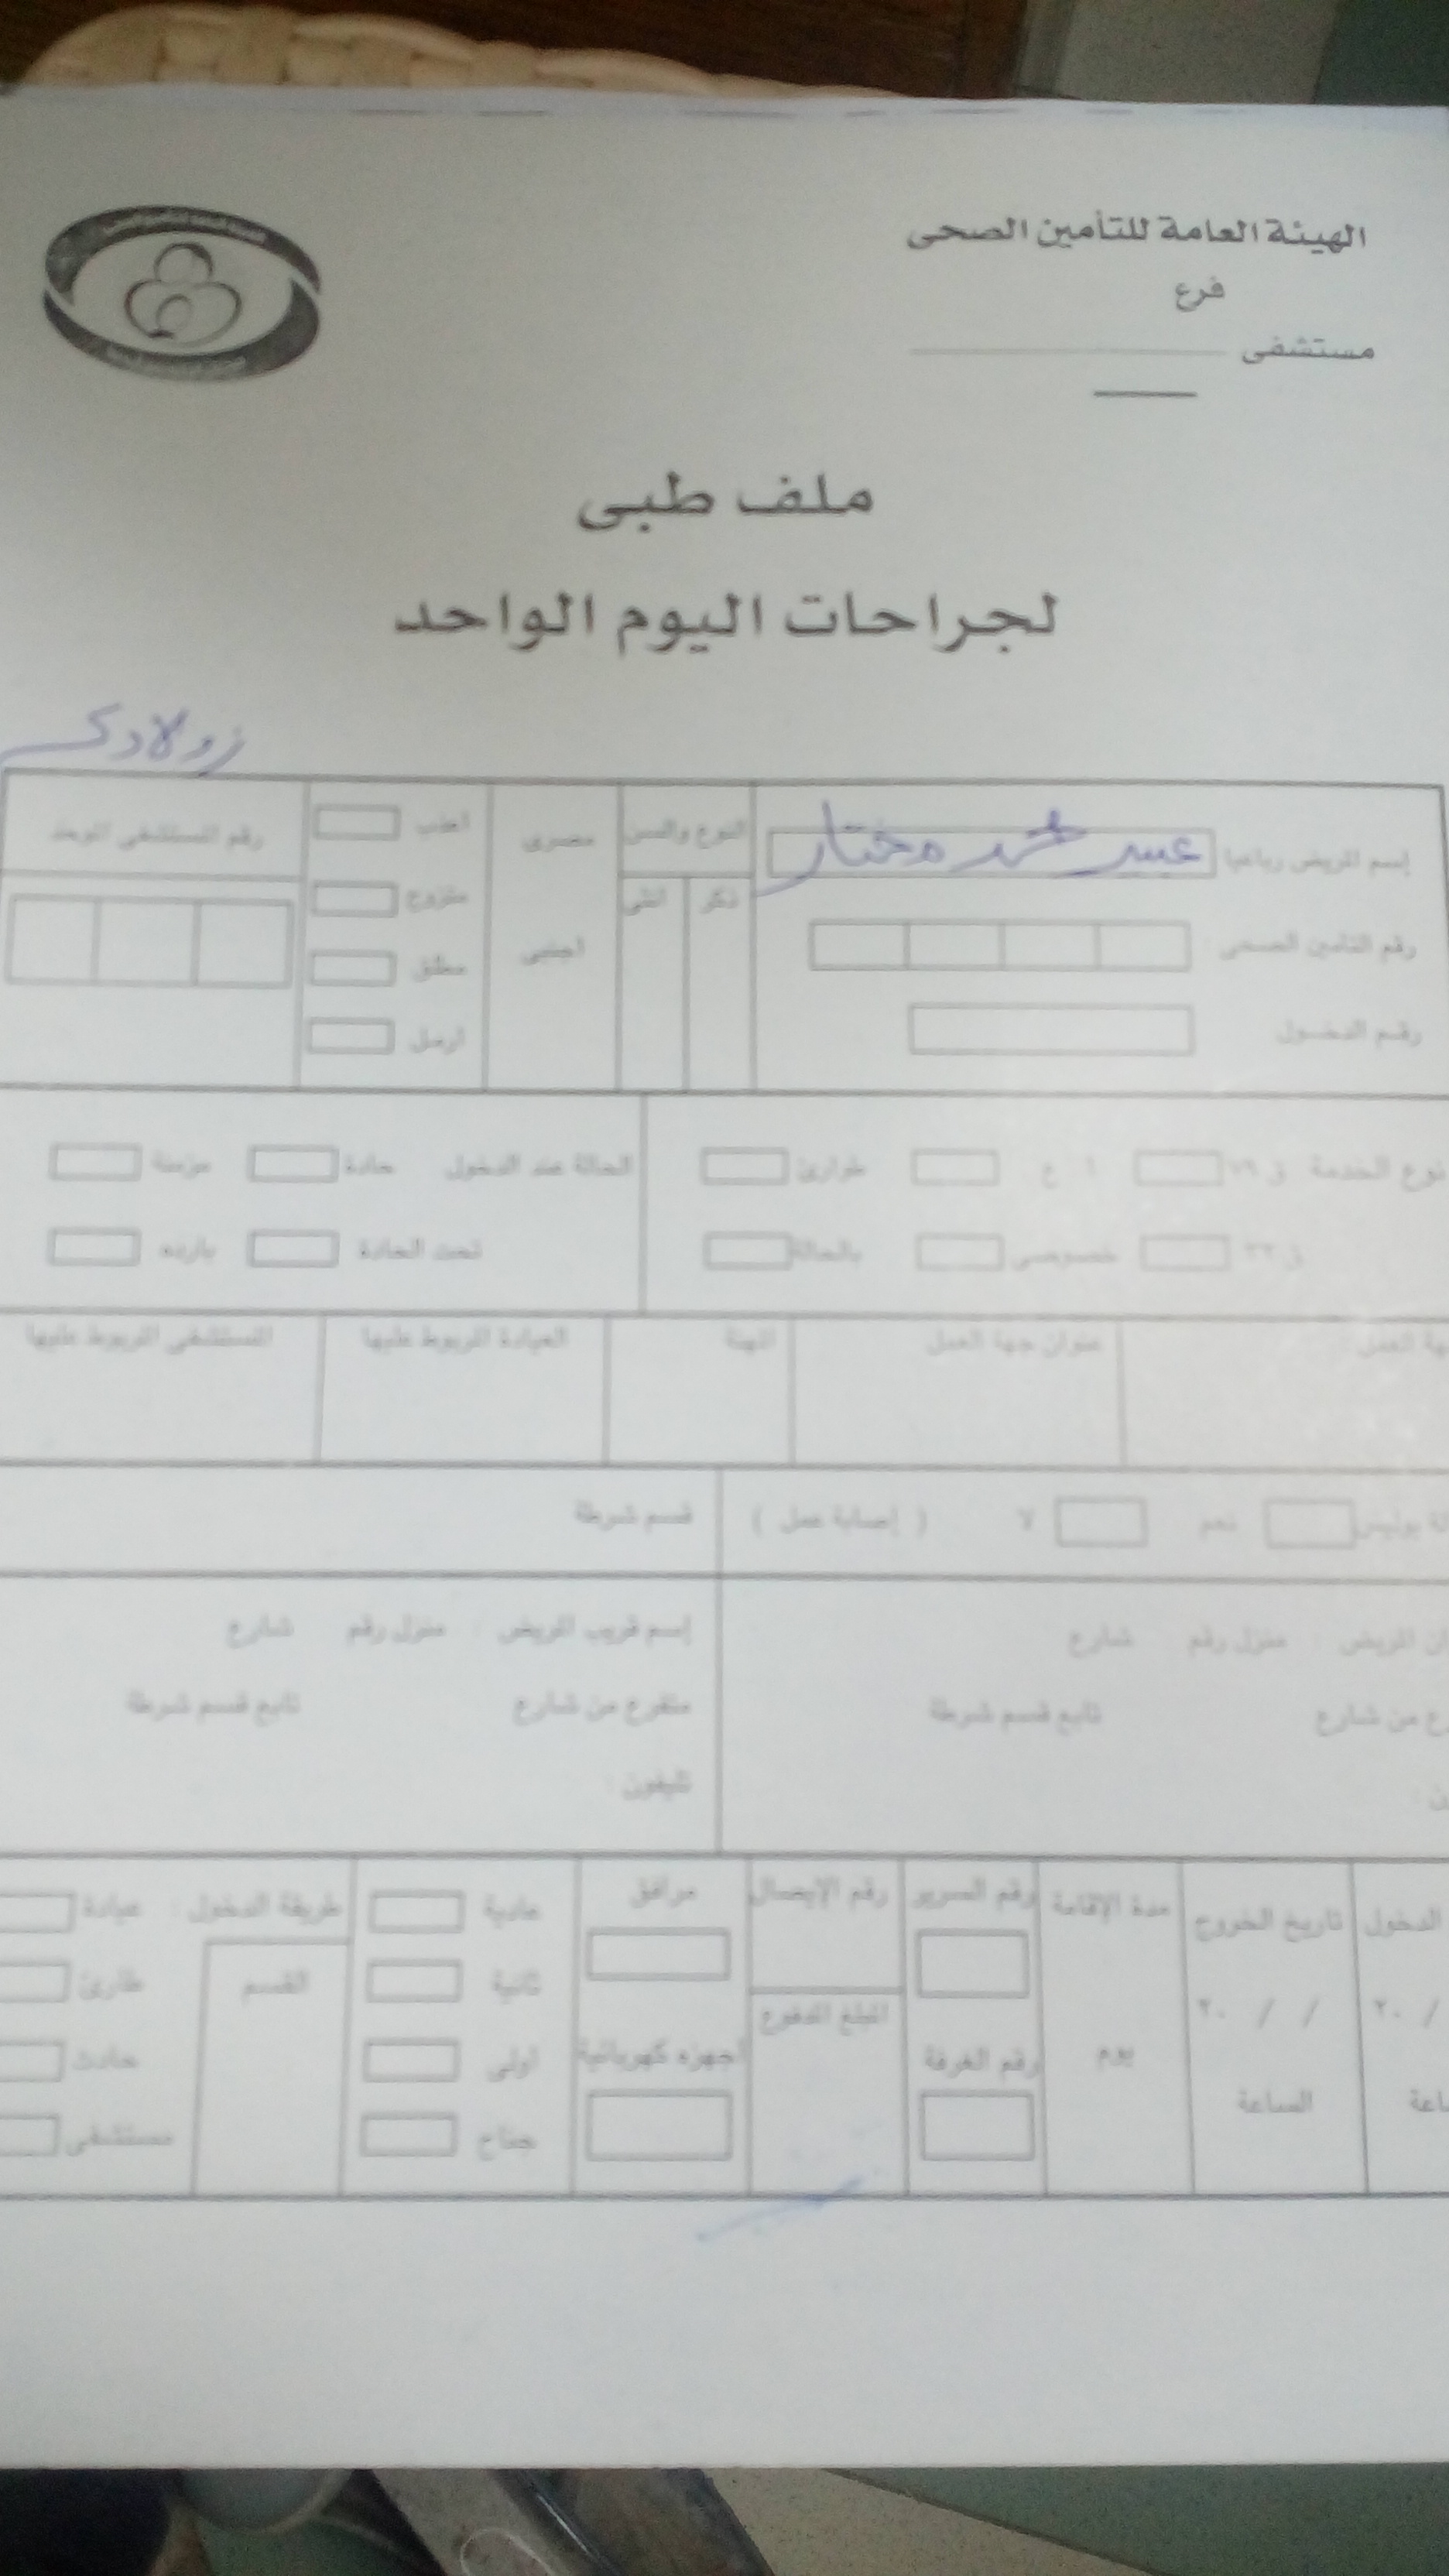 الهيئة العامة للتأمين الصحى
فرع
مستشفى
ملف طبى
لجراحات اليوم الواحد
زولادكس
إسم المريض رباعيا عبير محمد مختار
النوع والسن
ذكر انثى
مصرى
اجنبى
اعذب
متزوج
مطلق
ارمل
رقم المستشفى الموحد
رقم التامين الصحى
رقم الدخول
نوع الخدمة ق ٧٩ ع طوارئ
ق ٣٢ خصوصى بالحالة
الحالة عند الدخول حادة مزمنة
تحت الحادة بارده
جهة العمل عنوان جهة العمل المهنة العيادة المربوط عليها المستشفى المربوط عليها
نعم لا ( إصابة عمل ) قسم شرطة
المريض : منزل رقم شارع
من شارع تابع قسم شرطة
إسم قريب المريض : منزل رقم شارع
متفرع من شارع تابع قسم شرطة
تليفون :
الدخول
/ ٢٠
تاريخ الخروج
/ / ٢٠
الساعة
مدة الإقامة
يوم
رقم السرير
رقم الغرفة
رقم الإيصال
المبلغ المدفوع
مرافق
اجهزه كهربائية
عادية
ثانية
اولى
جناح
طريقة الدخول : عيادة
القسم
طارئ
حادث
مستشفى